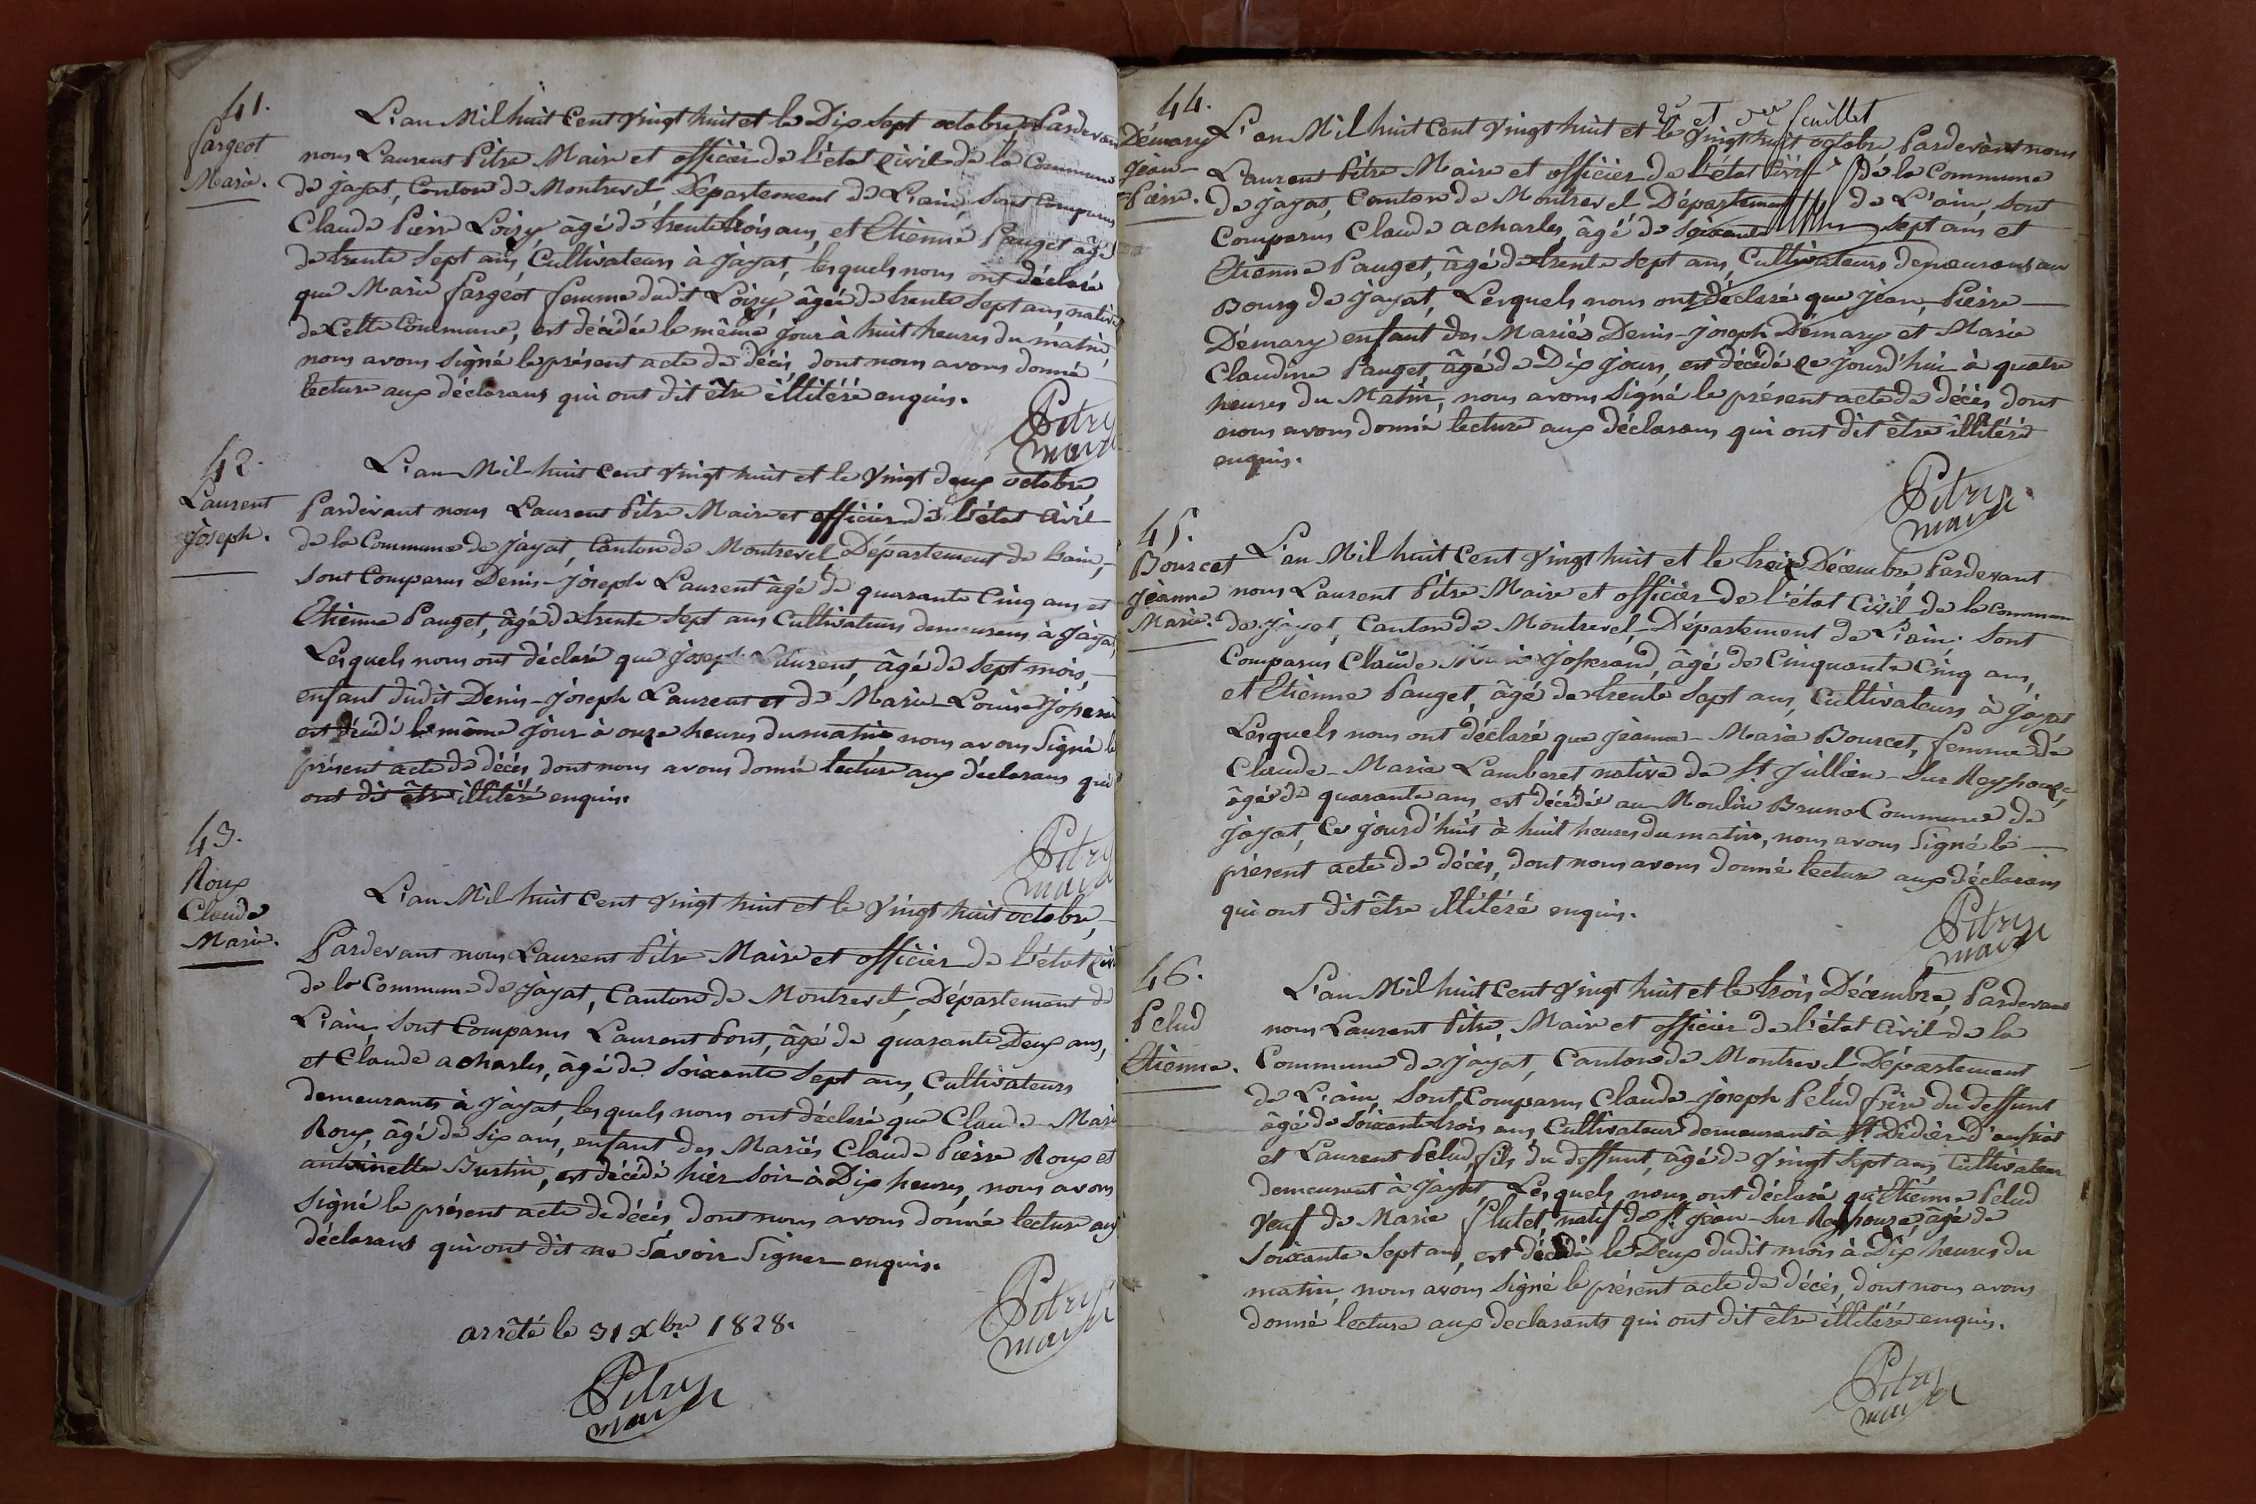 41.
fargeot
Marie.
L'an Mil huit Cent Vingt huit et le Dix sept octobre, Pardevant
nous Laurent Pitre Maire et officier de l'état Civil de la Commune
de jayat, Canton de Montrevel Département de L'ain, sont Comparus
Claude Pierre Loisy, âgé de trente trois ans, et Etienne Pauget âgé
de trente Sept ans, Cultivateurs à jayat, lesquels nous ont déclaré
que Marie fargeot femme dudit Loisy, âgée de trente sept ans, native
de Cette Commune, est décédée le même jour à huit heures du matin,
nous avons signé le présent acte de décès, dont nous avons donné
lecture aux déclarans qui ont dit être illitéré enquis.
Pitre
maire
42.
Laurent
joseph.
L'an Mil huit Cent Vingt huit et le Vingt deux octobre
Pardevant nous Laurent Pitre Maire et officier de l'état Civil
de la Commune de jayat, Canton de Montrevel Département de Lain,
sont Comparus Denis-joseph Laurent âgé de quarante Cinq ans et
Etienne Pauget, âgé de trente sept ans Cultivateurs demeurans à jayat
Lesquels nous ont déclaré que joseph Laurent, âgé de sept mois,
enfant dudit Denis-joseph Laurent et de Marie-Louise
est décédé le même jour à onze heures du matin nous avons signé le
présent acte de décès, dont nous avons donné lecture aux déclarans qui
ont dit être illitéré enquis.
Pitre
maire
43.
Roux
Claude
Marie.
L'an Mil huit Cent Vingt huit et le Vingt huit octobre,
Pardevant nous Laurent Pitre Maire et officier de l'état Civil
de la Commune de jayat, Canton de Montrevel, Département de
L'ain, sont Comparus Laurent Pont, âgé de quarante Deux ans,
et Claude acharles, âgé de Soixante Sept ans, Cultivateurs
demeurants à jayat, lesquels nous ont déclaré que Claude-Marie
Roux, âgé de Six ans, enfant des Mariés Claude Pierre Roux et
antoinette Burtin, est décédé hier soir à Dix heures, nous avons
signé le présent acte de décès, dont nous avons donné lecture aux
déclarans qui ont dit ne Savoir Signer enquis.
Pitre
maire
arrêté le 31 Xbre 1828.
Pitre
maire
2e et der feuillet
44.
Démary
jean-
Pierre.
L'an Mil huit Cent Vingt huit et le Vingt huit octobre Pardevant nous
Laurent Pitre Maire et officier de l'état Civil de la Commune
de jayat, Canton de Montrevel Département de L'ain, sont
Comparus Claude acharles, âgé de soixante sept ans, et
Etienne Pauget, âgé de trente sept ans, Cultivateurs demeurans au
Bourg de jayat, Lesquels nous ont déclaré que jean-Pierre
Démary enfant des Mariés Denis-joseph Démary et Marie
Claudine Pauget, âgé de Dix jours, est décédé Ce jourd'hui à quatre
heures du Matin, nous avons signé le présent acte de décès, dont
nous avons donné lecture aux déclarans qui ont dit être illitéré
enquis.
Pitre
maire
45.
Bourcet
jeanne
Marie.
L'an Mil huit Cent Vingt huit et le treize Décembre, Pardevant
nous Laurent Pitre Maire et officier de l'état Civil de la Commune
de jayat, Canton de Montrevel, Département de L'ain, sont
Comparus Claude Marie josserand, âgé de Cinquante Cinq ans,
et Etienne Pauget, âgé de trente Sept ans, Cultivateurs à jayat
Lesquels nous ont déclaré que jeanne-Marie Bourcet, femme de
Claude-Marie Lamberet native de St. jullien-sur Reyssouze,
âgée de quarante ans, est décédée au Moulin Bruno Commune de
jayat, Ce jourd'hui à huit heures du matin, nous avons signé le
présent acte de décès, dont nous avons donné lecture aux déclarans
qui ont dit être illitéré enquis.
Pitre
maire
46.
Pelud
Etienne.
L'an Mil huit Cent Vingt huit et le trois Décembre, Pardevant
nous Laurent Pitre, Maire et officier de l'état Civil de la
Commune de jayat, Canton de Montrevel Département
de L'ain, sont Comparus Claude-joseph Pelud frère du deffunt
âgé de Soixante trois ans, Cultivateur demeurant à St. Didier d'aussiat
et Laurent Pelud, fils du deffunt, âgé de Vingt Sept ans Cultivateur
demeurant à jayat Lesquels nous ont déclaré qu'Etienne Pelud
Veuf de Marie flutet, natif de St. jean-sur Reyssouze, âgé de
Soixante Sept ans, est décédé le Deux dudit mois à Dix heures du
matin, nous avons signé le présent acte de décès, dont nous avons
donné lecture aux declarants qui ont dit être illitéré enquis.
Pitre
maire